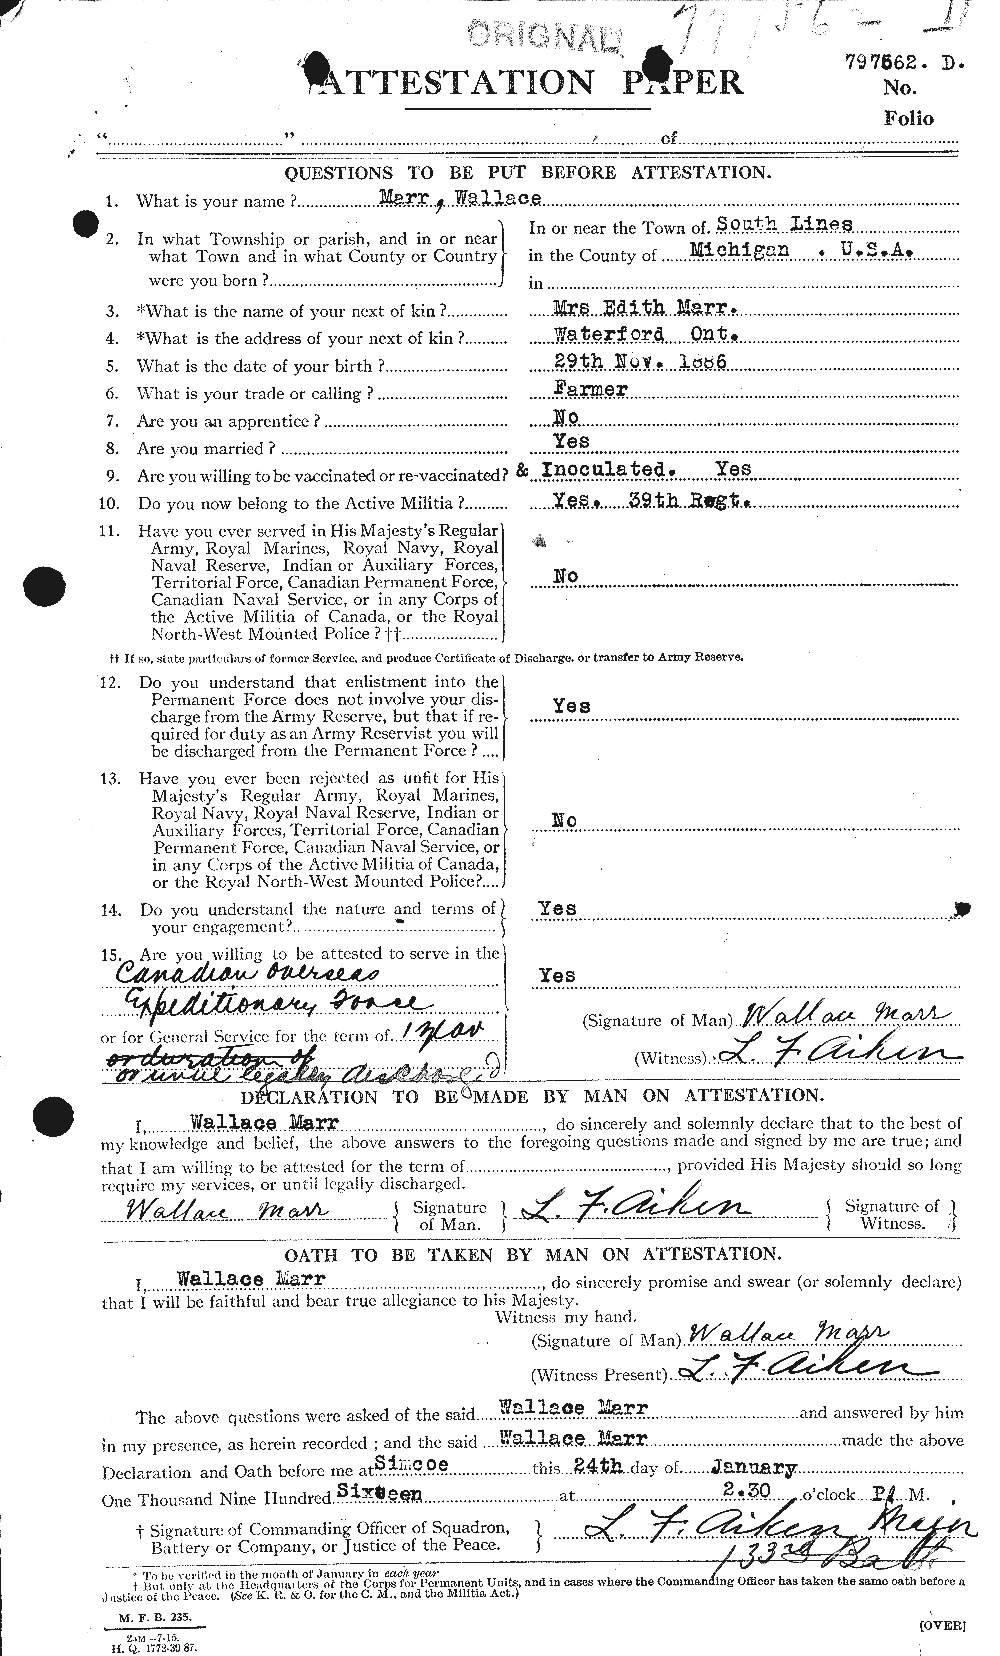 ORIGNAL
797562. D.
ATTESTATION PAPER
No.
Folio
"..........." ........... of
QUESTIONS TO BE PUT BEFORE ATTESTATION.
1. What is your name ? Marr, Wallace
2. In what Township or parish, and in or near what Town and in what County or Country were you born ?
In or near the Town of South Lines
in the County of Michigan . U.S.A.
in
3. *What is the name of your next of kin ? Mrs Edith Marr.
4. *What is the address of your next of kin ? Waterford Ont.
5. What is the date of your birth ? 29th Nov. 1886
6. What is your trade or calling ? Farmer
7. Are you an apprentice ? No
8. Are you married ? Yes
9. Are you willing to be vaccinated or re-vaccinated? & Inoculated. Yes
10. Do you now belong to the Active Militia ? Yes. 39th Regt.
11. Have you ever served in His Majesty's Regular
Army, Royal Marines, Royal Navy, Royal
Naval Reserve, Indian or Auxiliary Forces,
Territorial Force, Canadian Permanent Force, No
Canadian Naval Service, or in any Corps of
the Active Militia of Canada, or the Royal
North-West Mounted Police ? ††
†† If so, state particulars of former Service, and produce Certificate of Discharge, or transfer to Army Reserve.
12. Do you understand that enlistment into the
Permanent Force does not involve your dis- Yes
charge from the Army Reserve, but that if re-
quired for duty as an Army Reservist you will
be discharged from the Permanent Force ?
13. Have you ever been rejected as unfit for His
Majesty's Regular Army, Royal Marines,
Royal Navy, Royal Naval Reserve, Indian or No
Auxiliary Forces, Territorial Force, Canadian
Permanent Force, Canadian Naval Service, or
in any Corps of the Active Militia of Canada,
or the Royal North-West Mounted Police?
14. Do you understand the nature and terms of Yes
your engagement?
15. Are you willing to be attested to serve in the
Canadian Overseas Yes
Expeditionary Force
(Signature of Man) Wallace Marr
or for General Service for the term of 1
(Witness) L F Aiken
or duration of
or until legally discharged
DECLARATION TO BE MADE BY MAN ON ATTESTATION.
I, Wallace Marr, do sincerely and solemnly declare that to the best of
my knowledge and belief, the above answers to the foregoing questions made and signed by me are true; and
that I am willing to be attested for the term of, provided His Majesty should so long
require my services, or until legally discharged.
Wallace Marr Signature of Man. L. F. Aiken Signature of Witness.
OATH TO BE TAKEN BY MAN ON ATTESTATION.
I, Wallace Marr, do sincerely promise and swear (or solemnly declare)
that I will be faithful and bear true allegiance to his Majesty.
Witness my hand.
(Signature of Man) Wallace Marr
(Witness Present) L. F. Aiken
The above questions were asked of the said Wallace Marr and answered by him
in my presence, as herein recorded ; and the said Wallace Marr made the above
Declaration and Oath before me at Simcoe this 24th day of January
One Thousand Nine Hundred Sixteen at 2.30 o'clock P. M.
† Signature of Commanding Officer of Squadron, L. F. Aiken Major
Battery or Company, or Justice of the Peace. 133rd Batt
* To be verified in the month of January in each year
† But only at the Headquarters of the Corps for Permanent Units, and in cases where the Commanding Officer has taken the same oath before a
Justice of the Peace. (See K. R. & O. for the C. M., and the Militia Act.)
M. F. B. 235.
7-15.
H. Q. 1772-39 87.
[OVER]